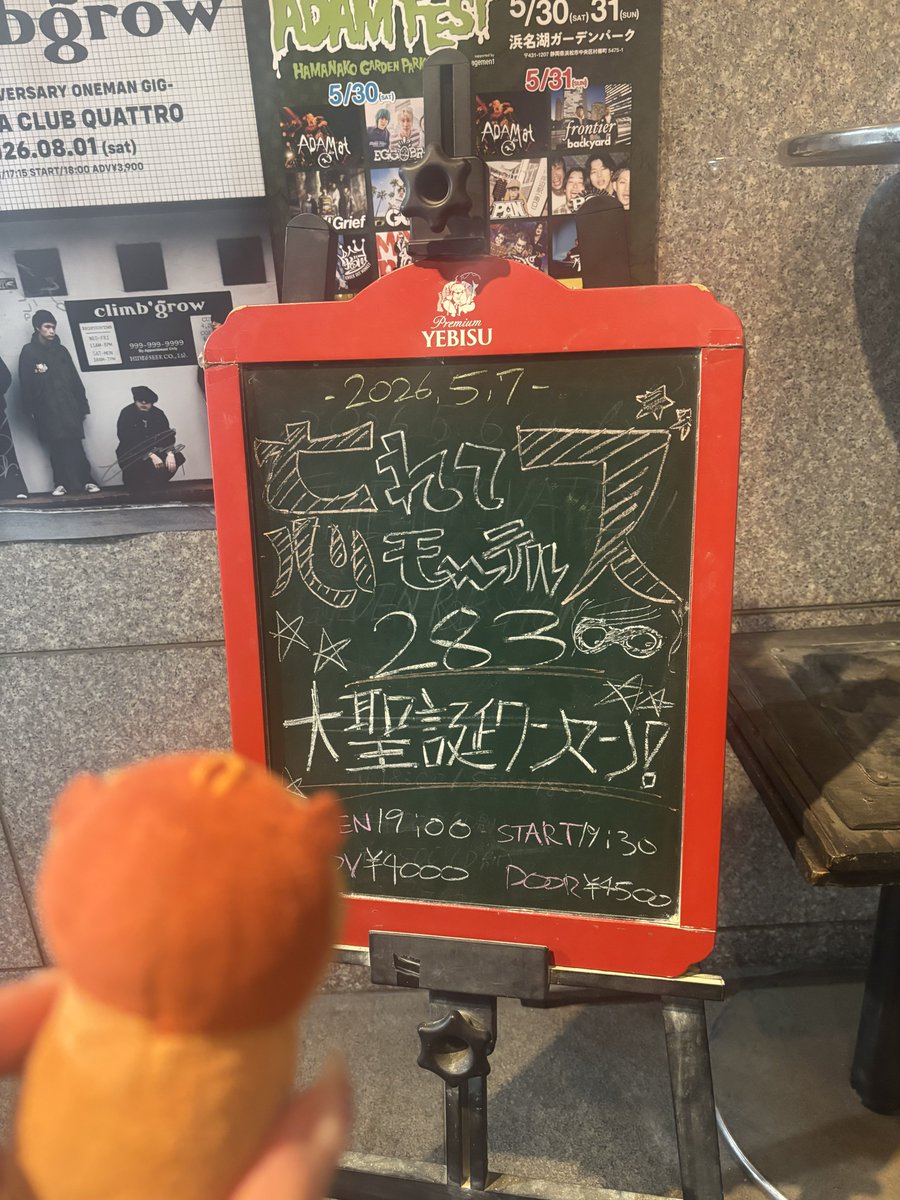 b'grow
VERSARY ONEMAN GIG-
A CLUB QUATTRO
26.08.01 (sat)
/17:15 START/18:00 ADV¥3,900
climb'grow
999-999-9999
ADAM FEST
HAMANAKO GARDEN PARK
5/30(SAT)31(SUN)
浜名湖ガーデンパーク
〒431-1207 静岡県浜松市中央区村櫛町 5475-1
5/30(SAT)
5/31(SUN)
ADAM at
ADAM at
frontier backyard
Grief
PAN
Premium
YEBISU
-2026.5.7-
忘れて
モーテルス
283
大聖誕ワンマン!
EN19:00 START19:30
DV¥4000 DOOR¥4500